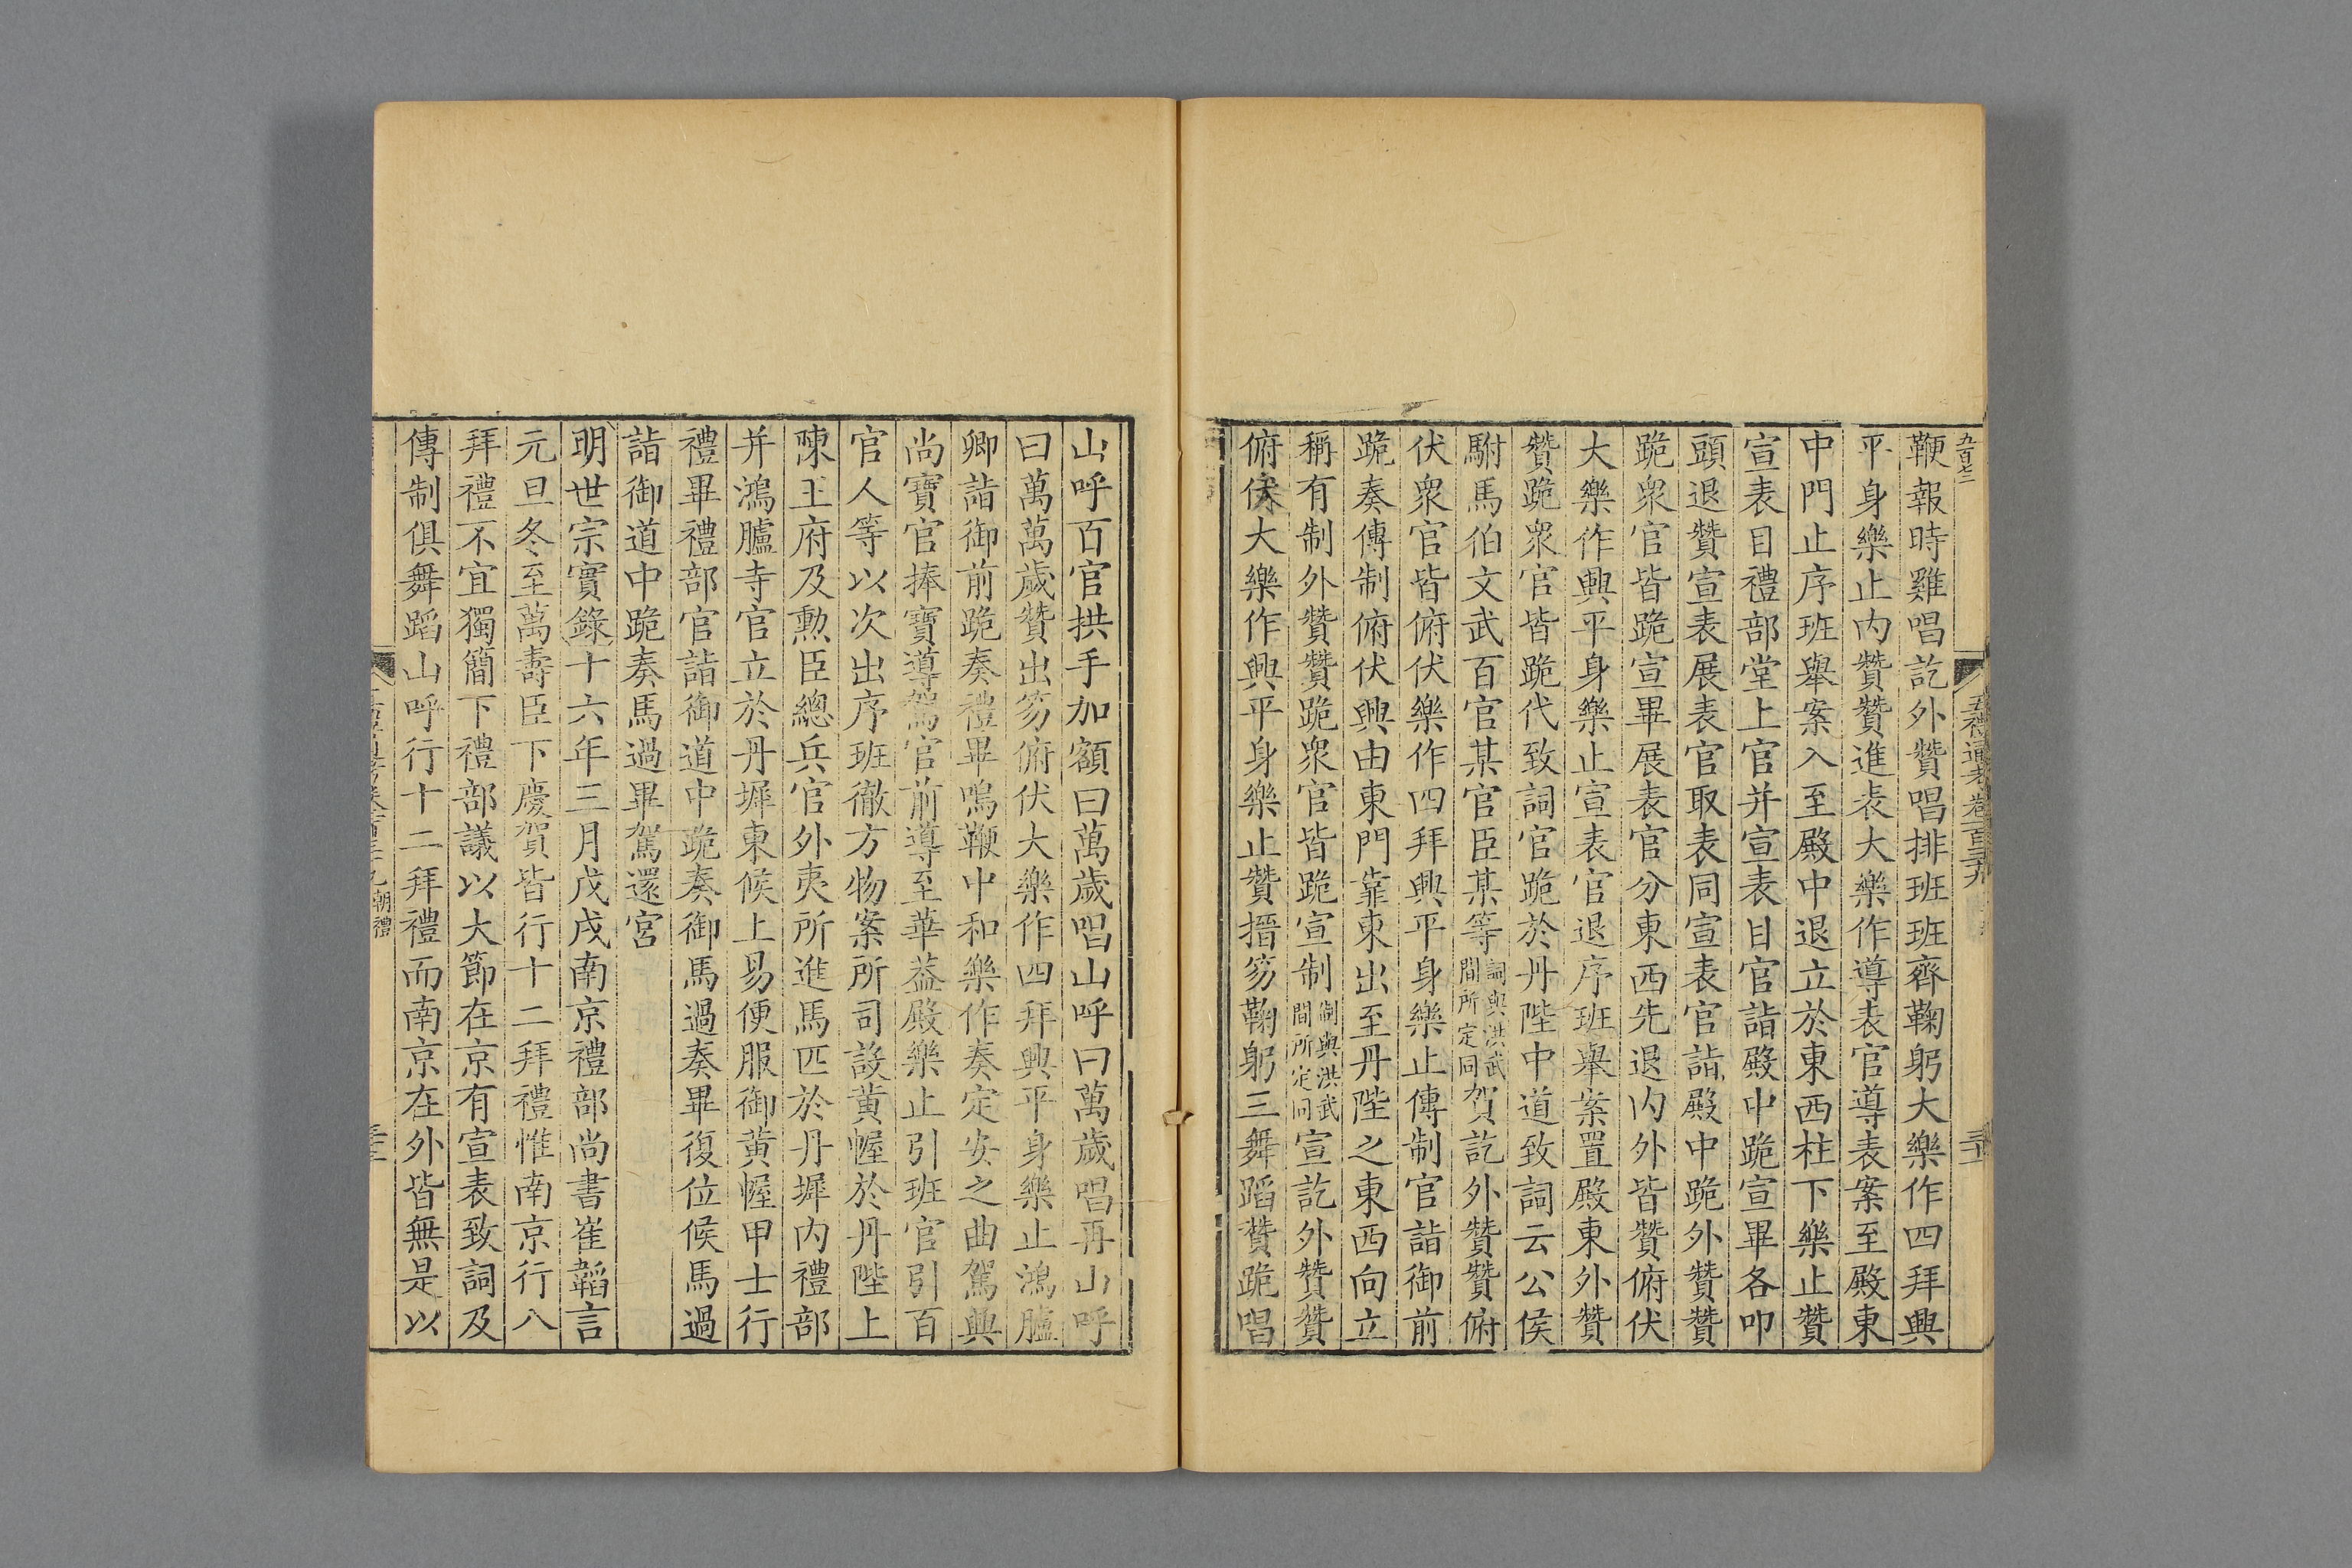 九百七二
五禮通考卷一百三十九
三十一
鞭報時雞唱訖外贊唱排班班齊鞠躬大樂作四拜興
平身樂止內贊贊進表大樂作導表官導表案至殿東
中門止序班舉案入至殿中退立於東西柱下樂止贊
宣表目禮部堂上官并宣表目官詣殿中跪宣畢各叩
頭退贊宣表展表官取表同宣表官詣殿中跪外贊贊
跪衆官皆跪宣畢展表官分東西先退內外皆贊俯伏
大樂作興平身樂止宣表官退序班舉案置殿東外贊
贊跪衆官皆跪代致詞官跪於丹陛中道致詞云公侯
駙馬伯文武百官某官臣某等詞與洪武間所定同賀訖外贊贊俯
伏衆官皆俯伏樂作四拜興平身樂止傳制官詣御前
跪奏傳制俯伏興由東門靠東出至丹陛之東西向立
稱有制外贊贊跪衆官皆跪宣制制與洪武間所定同宣訖外贊贊
俯伏大樂作興平身樂止贊搢笏鞠躬三舞蹈贊跪唱
山呼百官拱手加額曰萬歲唱山呼曰萬歲唱再山呼
曰萬萬歲贊出笏俯伏大樂作四拜興平身樂止鴻臚
卿詣御前跪奏禮畢鳴鞭中和樂作奏定安之曲駕興
尚寶官捧寶導駕官前導至華葢殿樂止引班官引百
官人等以次出序班徹方物案所司設黃幄於丹陛上
陳王府及勲臣總兵官外夷所進馬匹於丹墀內禮部
并鴻臚寺官立於丹墀東候上易便服御黃幄甲士行
禮畢禮部官詣御道中跪奏御馬過奏畢復位候馬過
詣御道中跪奏馬過畢駕還宮
明世宗實錄十六年三月戊戌南京禮部尚書崔韜言
元旦冬至萬壽臣下慶賀皆行十二拜禮惟南京行八
拜禮不宜獨簡下禮部議以大節在京有宣表致詞及
傳制俱舞蹈山呼行十二拜禮而南京在外皆無是以
朝禮
三十二